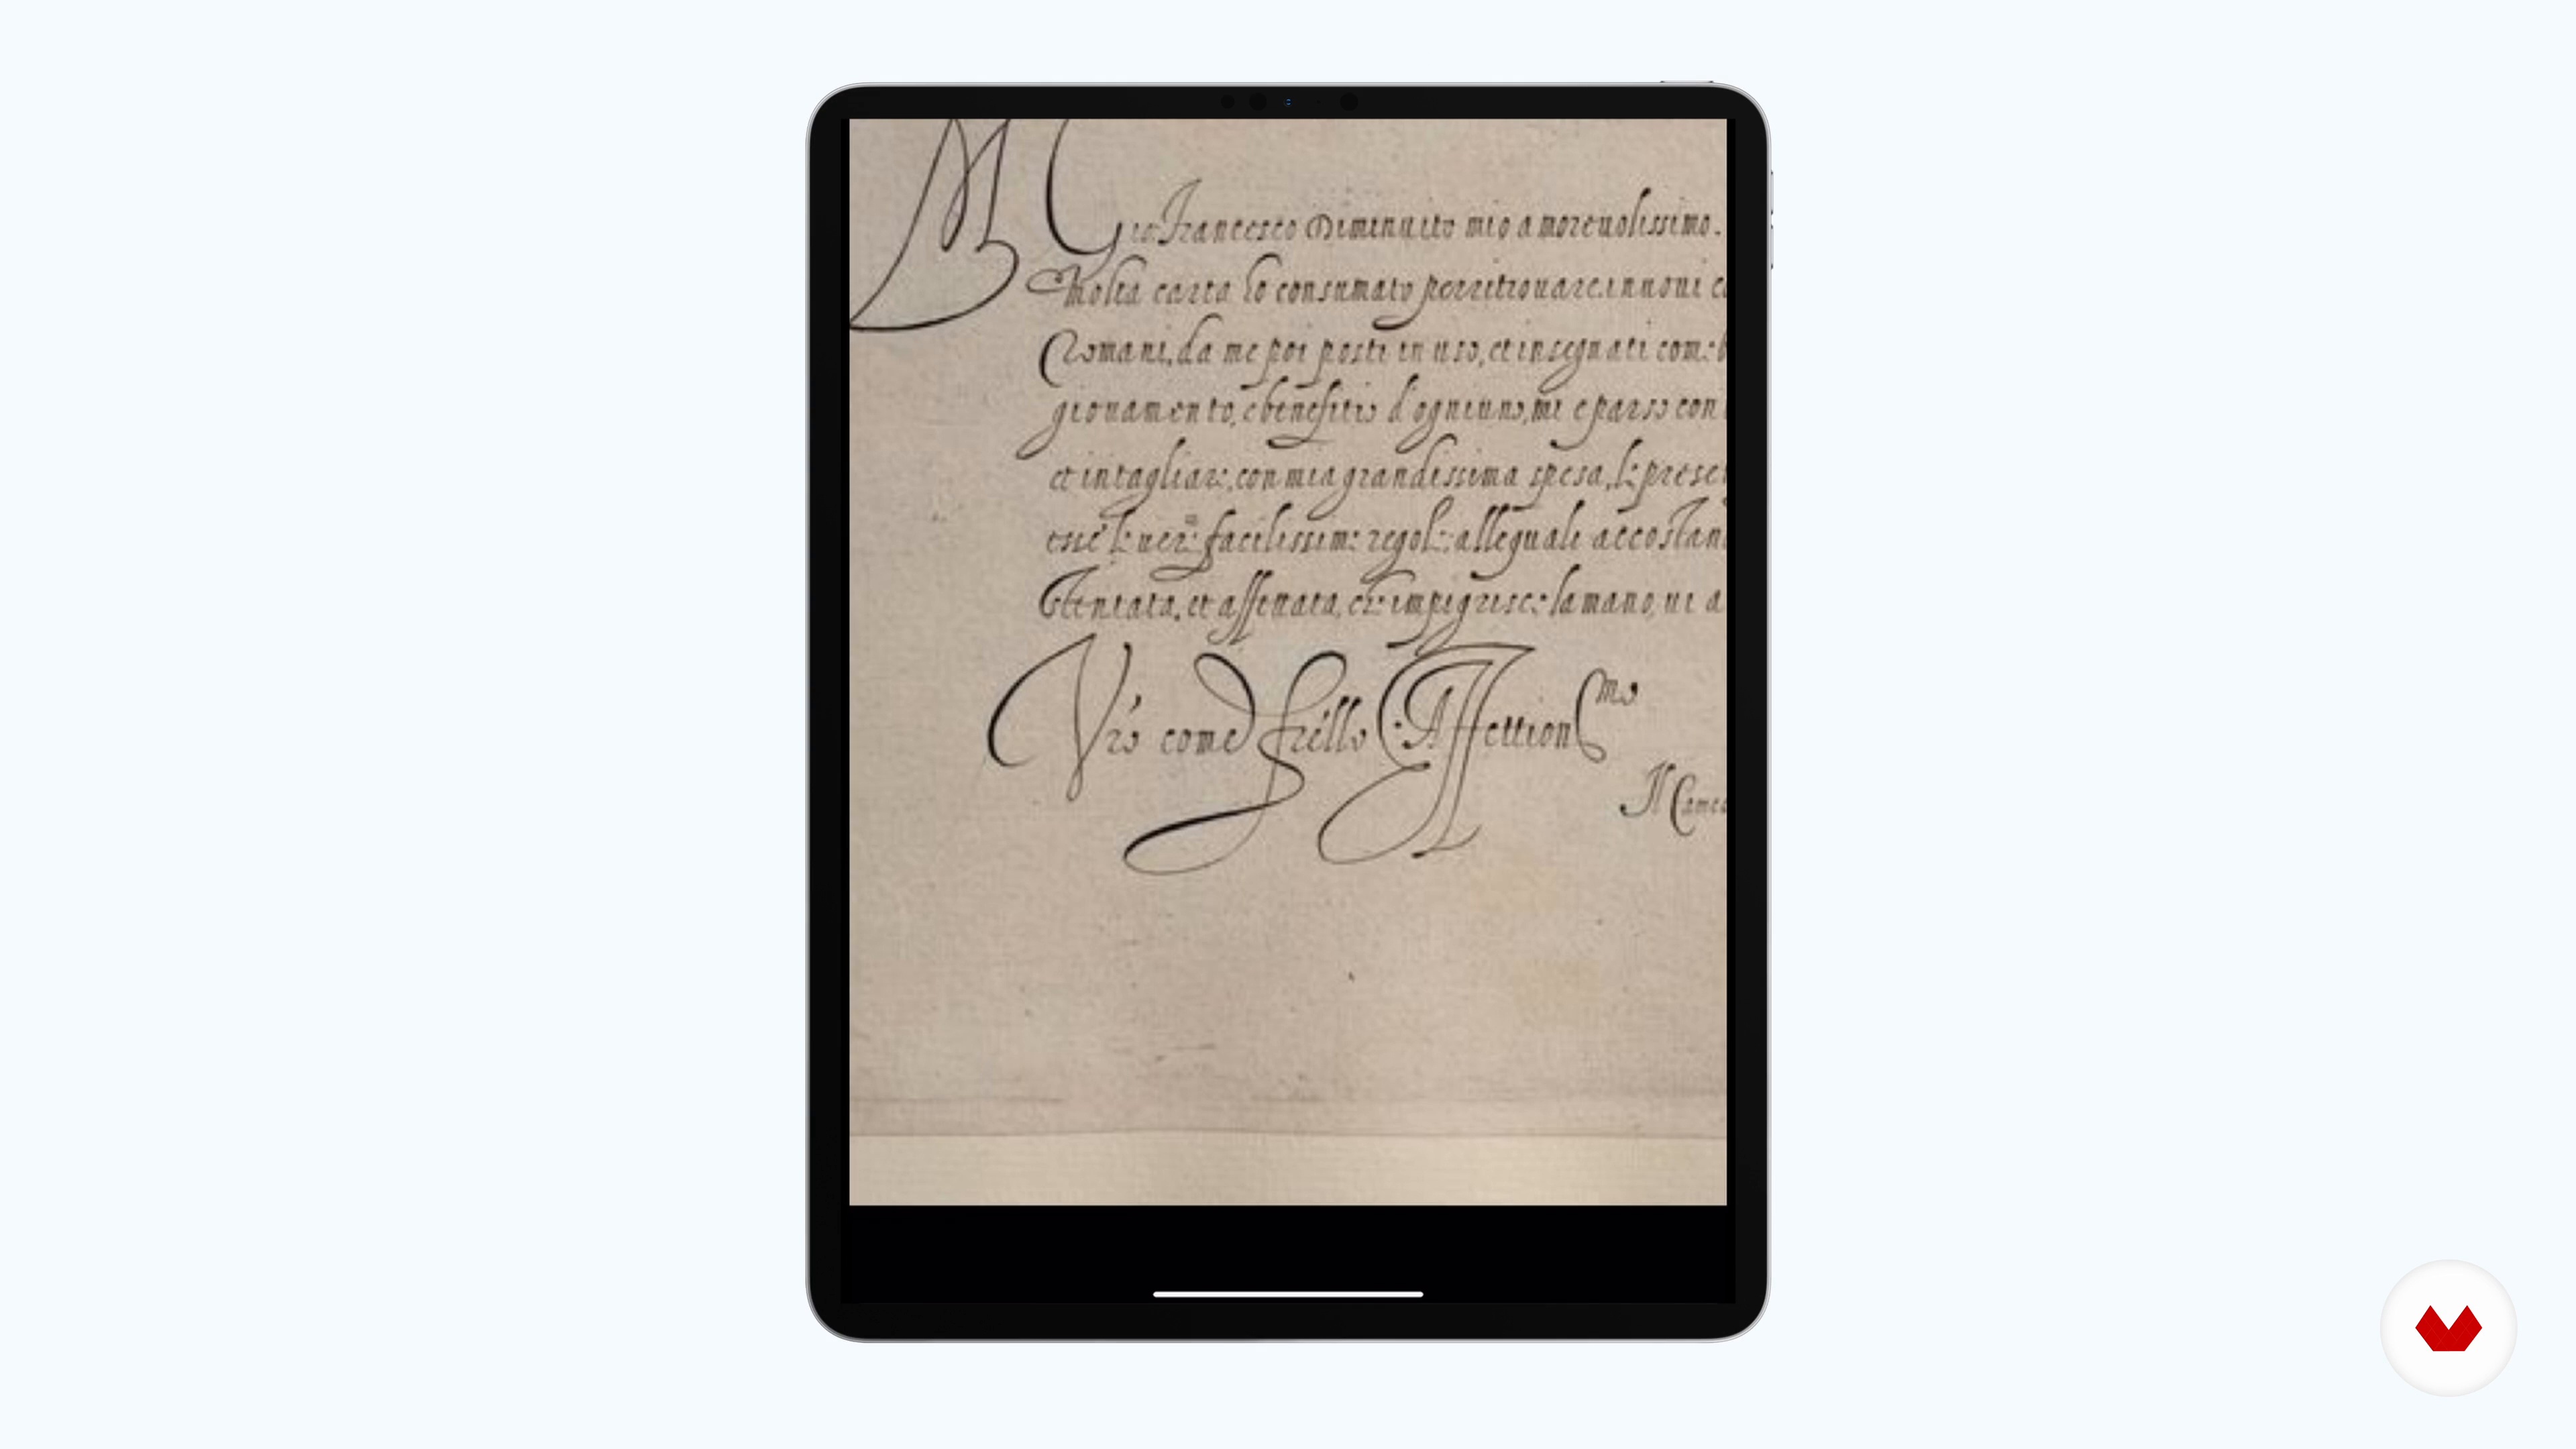 M G
io: Francesco Diminuito mio amoreuolissimo.
Molta carta ho consumato per ritrouare innoui
Romani, da me poi posti in uso, et insegnati come
giouamento, e benefitio d'ogniuno, mi e parso con
et intagliare, con mia grandissima spesa, le
esse le uere facilissime regole: allequali
Stentata, et affettata, che impigrisce la mano, ui a
Vro come frello Affettion mo
Il